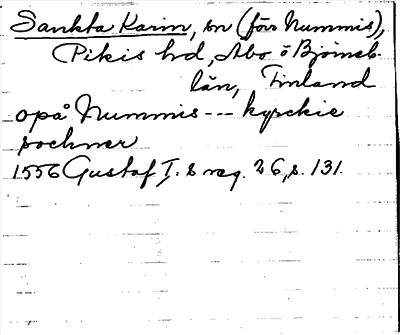 Sankta Karin, sn (förr Nummis),
Pikis hd, Åbo o Björneb.
län, Finland
opå Nummis --- kyrckie
sochner
1556 Gustaf I. s reg. 26, s. 131.